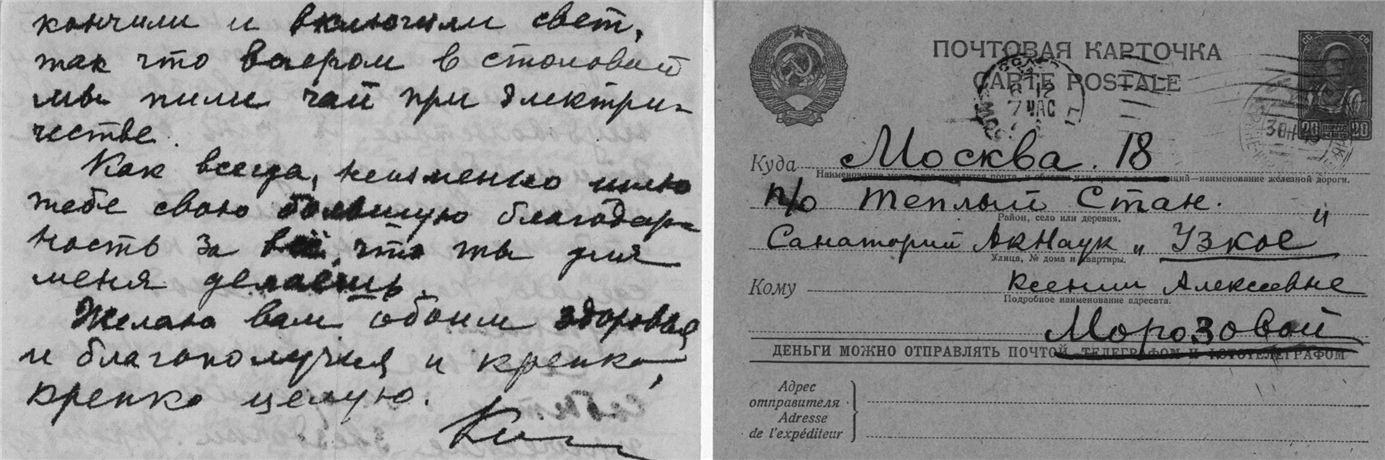 кончили и включили свет,
так что вечером в столовой
мы пили чай при электри-
честве.
Как всегда, неизменно шлю
тебе свою большую благодар-
ность за всё, что ты для
меня делаешь.
Желаю вам обоим здоровья
и благополучия и крепко,
крепко целую.
ПОЧТОВАЯ КАРТОЧКА
CARTE POSTALE
СС СР
20 20
7 ЧАС
Куда Москва. 18
Наименование железной дороги.
п/о Теплый Стан.
Район, село или деревня.
Санаторий АкНаук „Узкое"
Улица, № дома и квартиры.
Кому Ксении Алексеевне
Подробное наименование адресата.
Морозовой
ДЕНЬГИ МОЖНО ОТПРАВЛЯТЬ ПОЧТОЙ, ТЕЛЕГРАФОМ И ФОТОТЕЛЕГРАФОМ
Адрес
отправителя
Adresse
de l'expéditeur